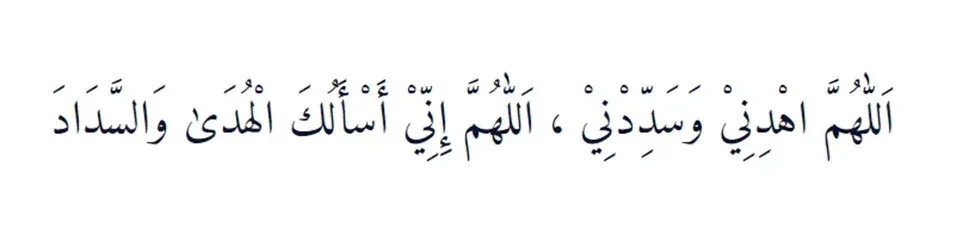 اَللّٰهُمَّ اهْدِنِيْ وَسَدِّدْنِيْ ، اَللّٰهُمَّ إِنِّيْ أَسْأَلُكَ الْهُدَىٰ وَالسَّدَادَ